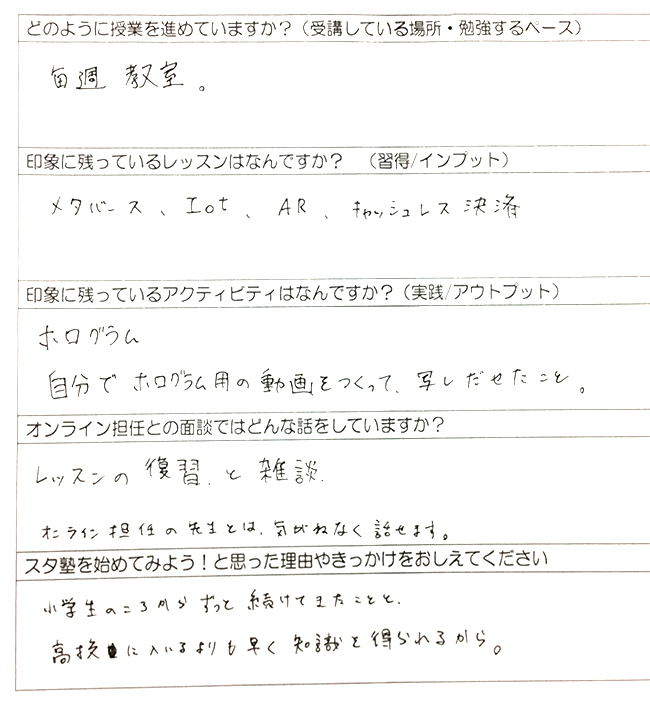 どのように授業を進めていますか？（受講している場所・勉強するペース）
毎週 教室。
印象に残っているレッスンはなんですか？ （習得/インプット）
メタバース、Iot、AR、キャッシュレス決済
印象に残っているアクティビティはなんですか？（実践/アウトプット）
ホログラム
自分でホログラム用の動画をつくって、写しだせたこと。
オンライン担任との面談ではどんな話をしていますか？
レッスンの復習、と雑談、
オンライン担任の先生とは、気がねなく話せます。
スタ塾を始めてみよう！と思った理由やきっかけをおしえてください
小学生のころからずっと続けてきたことと、
高校に入いるよりも早く知識を得られるから。